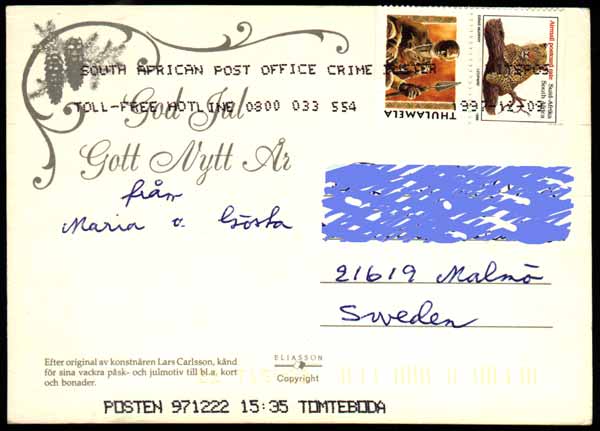 SOUTH AFRICAN POST OFFICE CRIME
TOLL-FREE HOTLINE 0800 033 554
1997-12-09
THULAMELA
Airmail postcard rate
Suid-Afrika
South Africa
God Jul
Gott Nytt År
från
Maria o. Gösta
21619 Malmö
Sweden
Efter original av konstnären Lars Carlsson, känd
för sina vackra påsk- och julmotiv till bl.a. kort
och bonader.
ELIASSON
Copyright
POSTEN 971222 15:35 TOMTEBODA